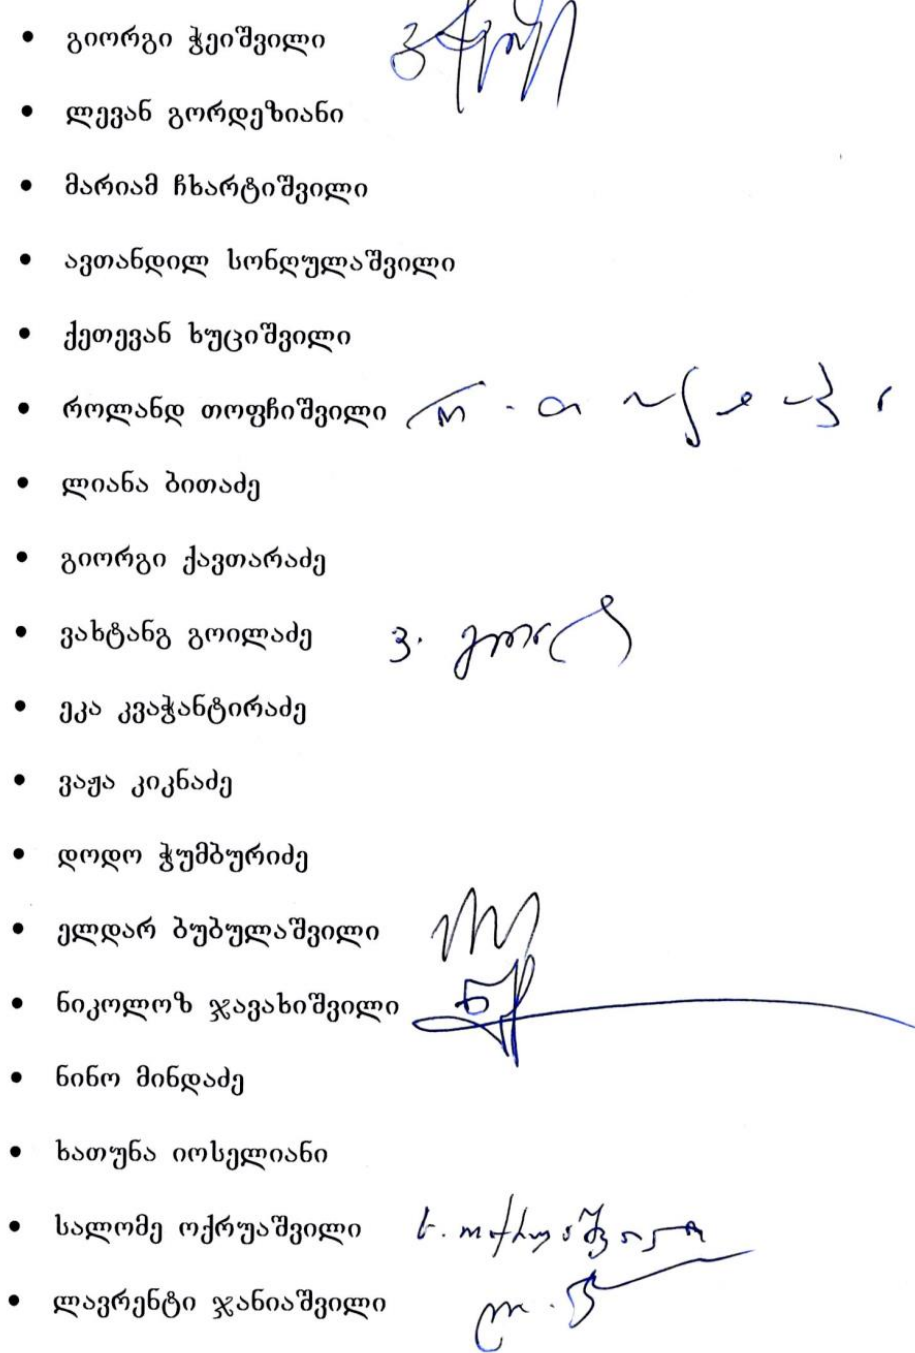 • გიორგი ჭეიშვილი
• ლევან გორდეზიანი
• მარიამ ჩხარტიშვილი
• ავთანდილ სონღულაშვილი
• ქეთევან ხუციშვილი
• როლანდ თოფჩიშვილი
• ლიანა ბითაძე
• გიორგი ქავთარაძე
• ვახტანგ გოილაძე ვ.
• ეკა კვაჭანტირაძე
• ვაჟა კიკნაძე
• დოდო ჭუმბურიძე
• ელდარ ბუბულაშვილი
• ნიკოლოზ ჯავახიშვილი
• ნინო მინდაძე
• ხათუნა იოსელიანი
• სალომე ოქრუაშვილი ს. ოქრუაშვილი
• ლავრენტი ჯანიაშვილი